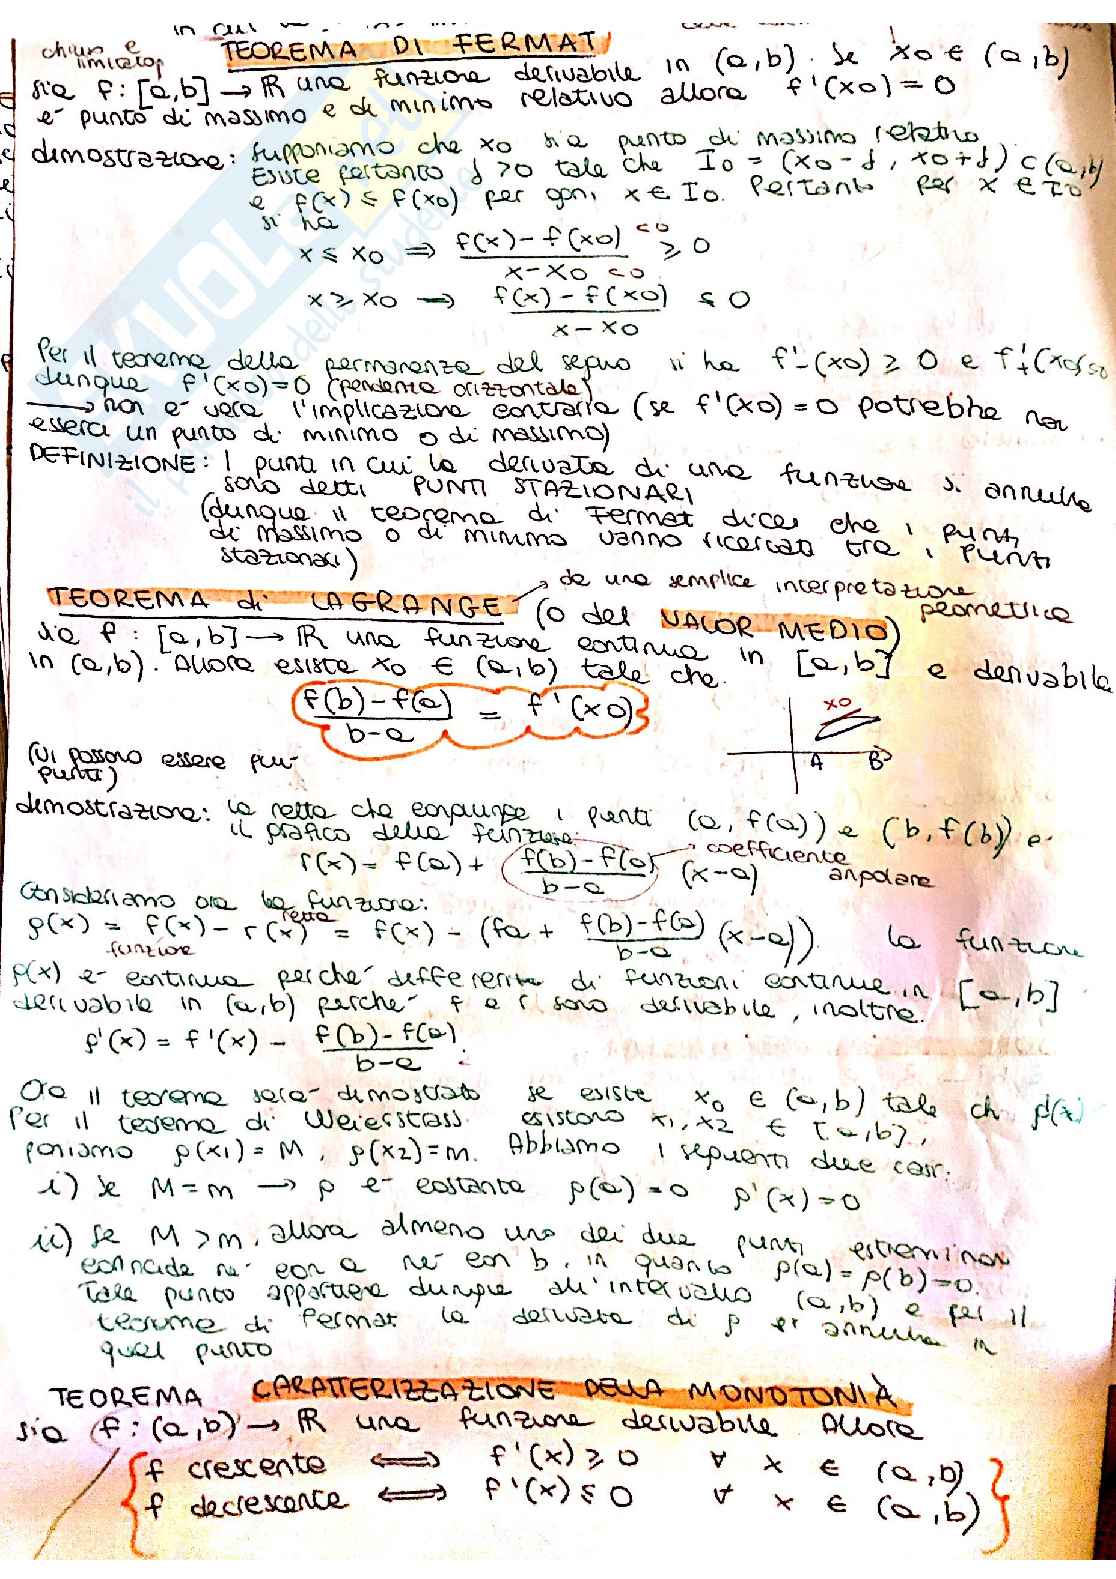 in cui
chiuso e
limitato
TEOREMA DI FERMAT
sia f: [a,b] → ℝ una funzione derivabile in (a,b). Se x0 ∈ (a,b)
e' punto di massimo e di minimo relativo allora f'(x0) = 0
dimostrazione: supponiamo che x0 sia punto di massimo relativo
Esiste pertanto δ > 0 tale che I0 = (x0-δ, x0+δ) ⊂ (a,b)
e f(x) ≤ f(x0) per ogni x ∈ I0. Pertanto per x ∈ I0
si ha
x ≤ x0 ⇒ f(x) - f(x0) / x - x0 ≥ 0
<0
<0
x ≥ x0 → f(x) - f(x0) / x - x0 ≤ 0
Per il teorema della permanenza del segno si ha f'-(x0) ≥ 0 e f'+(x0) ≤ 0
dunque f'(x0) = 0 (pendenza orizzontale)
→ non e' vera l'implicazione contraria (se f'(x0) = 0 potrebbe non
esserci un punto di minimo o di massimo)
DEFINIZIONE: I punti in cui la derivata di una funzione si annulla
sono detti PUNTI STAZIONARI
(dunque il teorema di Fermat dice che i punti
di massimo o di minimo vanno ricercati tra i punti
stazionari)
→ da una semplice interpretazione
geometrica
TEOREMA di LAGRANGE (o del VALOR MEDIO)
sia f: [a,b] → ℝ una funzione continua in [a,b] e derivabile
in (a,b). Allora esiste x0 ∈ (a,b) tale che
f(b) - f(a) / b - a = f'(x0)
x0
A B
(Vi possono essere piu'
punti)
dimostrazione: la retta che congiunge i punti (a, f(a)) e (b, f(b)) e'
il grafico della funzione:
r(x) = f(a) + f(b) - f(a) / b - a (x-a)
→ coefficiente
angolare
Consideriamo ora la funzione:
g(x) = f(x) - r(x) = f(x) - (fa + f(b) - f(a) / b - a (x-a)). la funzione
funzione retta
g(x) e' continua perche' differenza di funzioni continue in [a,b]
derivabile in (a,b) perche' f e r sono derivabile, inoltre.
g'(x) = f'(x) - f(b) - f(a) / b - a.
Ora il teorema sara' dimostrato se esiste x0 ∈ (a,b) tale ch g'(x)
Per il teorema di Weierstass esistono x1, x2 ∈ [a,b],
poniamo g(x1) = M, g(x2) = m. Abbiamo i seguenti due casi:
i) Se M = m → g e' costante g(a) = 0 g'(x) = 0
ii) Se M > m, allora almeno uno dei due punti estremi non
coincide ne' con a ne' con b, in quanto g(a) = g(b) = 0.
Tale punto appartiene dunque all'intervallo (a,b) e per il
teorema di Fermat la derivata di g si annulla in
quel punto
TEOREMA CARATTERIZZAZIONE DELLA MONOTONIA
sia f: (a,b) → ℝ una funzione derivabile Allora
f crescente ⟺ f'(x) ≥ 0 ∀ x ∈ (a,b)
f decrescente ⟺ f'(x) ≤ 0 ∀ x ∈ (a,b)